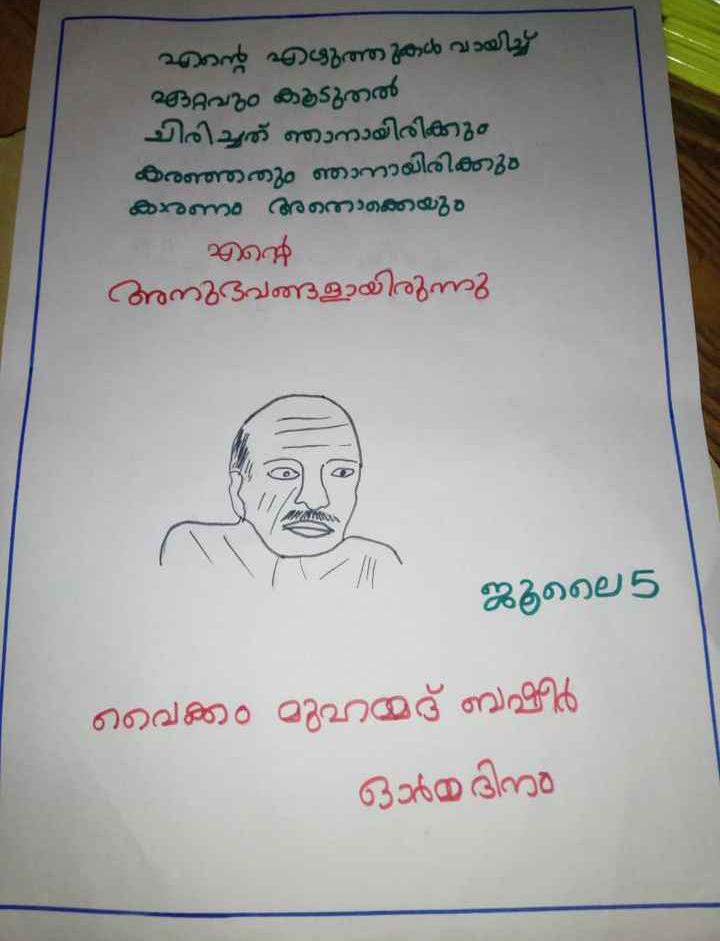 എന്റെ എഴുത്തുകൾ വായിച്ച്
ഏറ്റവും കൂടുതൽ
ചിരിച്ചത് ഞാനായിരിക്കും
കരഞ്ഞതും ഞാനായിരിക്കും
കാരണം അതൊക്കെയും
എന്റെ
അനുഭവങ്ങളായിരുന്നു
ജൂലൈ 5
വൈക്കം മുഹമ്മദ് ബഷീർ
ഓർമ്മ ദിനം